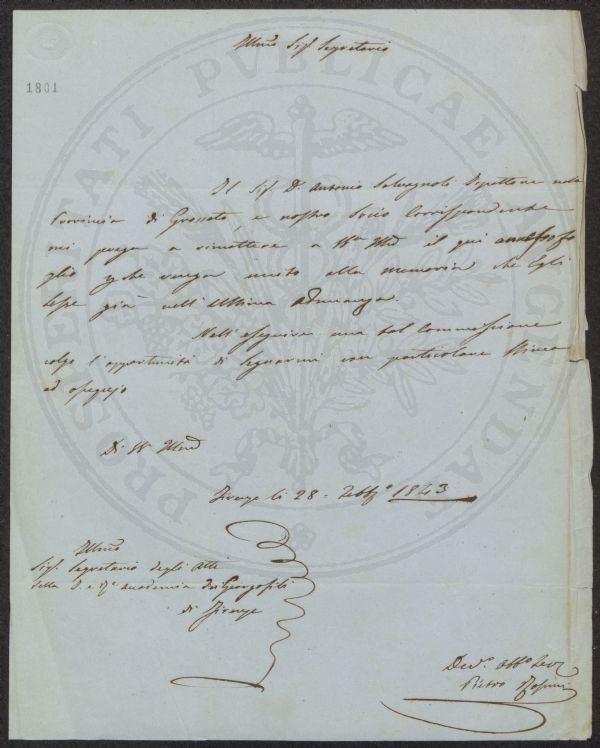 Illmo Sigr Segretario
1801
PROSPERITATI PVBLICAE AVGENDAE
Il Sigr Dr Antonio Salvagnoli Ispettore nella
Provincia di Grosseto e nostro Socio Corrispondente
mi prega a rimettere a il qui annesso fo
glio che venga unito alla memoria che Egli
lesse già nell'Ultima Adunanza.
Nell'eseguire una tal Commissione
colgo l'opportunità di segnarmi con particolare Stima
ed ossequio
Di
Firenze li 28 = Febbo 1843
Illmo
Sigr Segretario degli Atti
della I. e R. accademia dei Georgofili
di Firenze
Devo Obbo Serv
Pietro